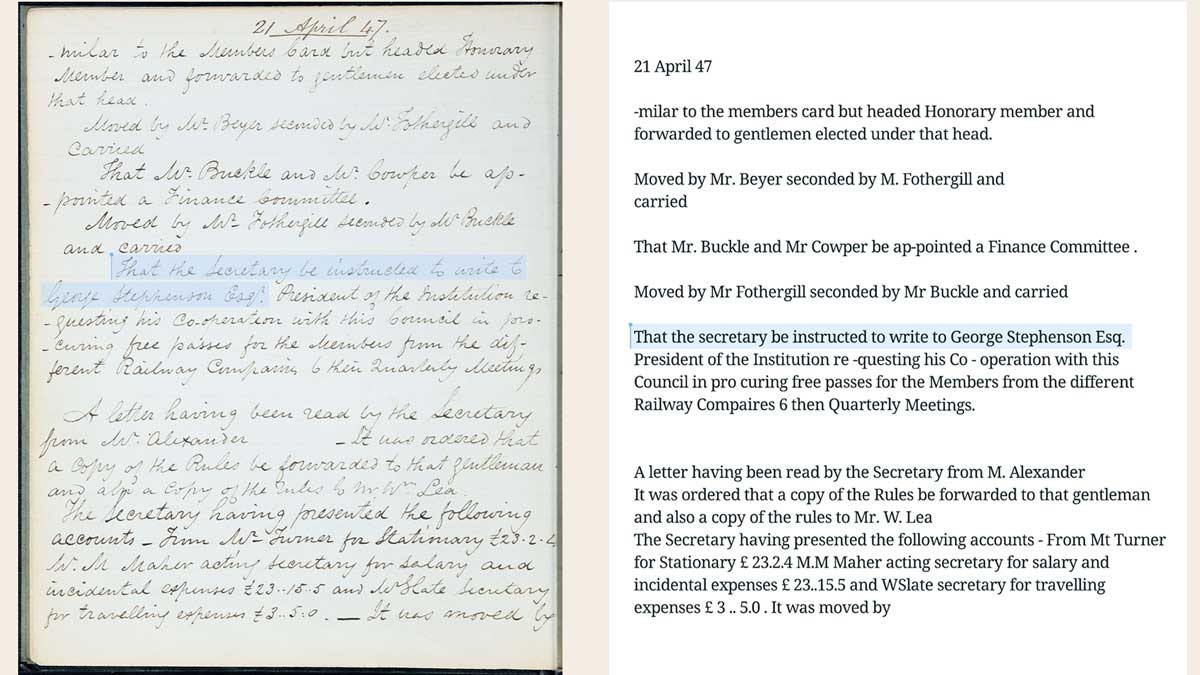 21 April 47.
-milar to the Members Card but headed Honorary
Member and forwarded to gentlemen elected under
that head.
Moved by Mr. Beyer seconded by Mr. Fothergill and
Carried
That Mr. Buckle and Mr. Cowper be ap-
-pointed a Finance Committee.
Moved by Mr. Fothergill seconded by Mr Buckle
and carried
That the Secretary be instructed to write to
George Stephenson Esqr. President of the Institution re-
-questing his Co-operation with this Council in pro-
-curing free passes for the Members from the dif-
ferent Railway Companies to their Quarterly Meetings
A letter having been read by the Secretary
from Mr. Alexander _ It was ordered that
a Copy of the Rules be forwarded to that gentleman
and also a Copy of the rules to Mr Wm Lea.
The Secretary having presented the following
accounts _ From Mr. Turner for Stationary £23-2-4
Mr. M Maher acting secretary for salary and
incidental expenses £23..15..5 and Mr Slate secretary
for travelling expenses £3..5.0. _ It was moved by
21 April 47
-milar to the members card but headed Honorary member and
forwarded to gentlemen elected under that head.
Moved by Mr. Beyer seconded by M. Fothergill and
carried
That Mr. Buckle and Mr Cowper be ap-pointed a Finance Committee .
Moved by Mr Fothergill seconded by Mr Buckle and carried
That the secretary be instructed to write to George Stephenson Esq.
President of the Institution re -questing his Co - operation with this
Council in pro curing free passes for the Members from the different
Railway Compaires 6 then Quarterly Meetings.
A letter having been read by the Secretary from M. Alexander
It was ordered that a copy of the Rules be forwarded to that gentleman
and also a copy of the rules to Mr. W. Lea
The Secretary having presented the following accounts - From Mt Turner
for Stationary £ 23.2.4 M.M Maher acting secretary for salary and
incidental expenses £ 23..15.5 and WSlate secretary for travelling
expenses £ 3 .. 5.0 . It was moved by